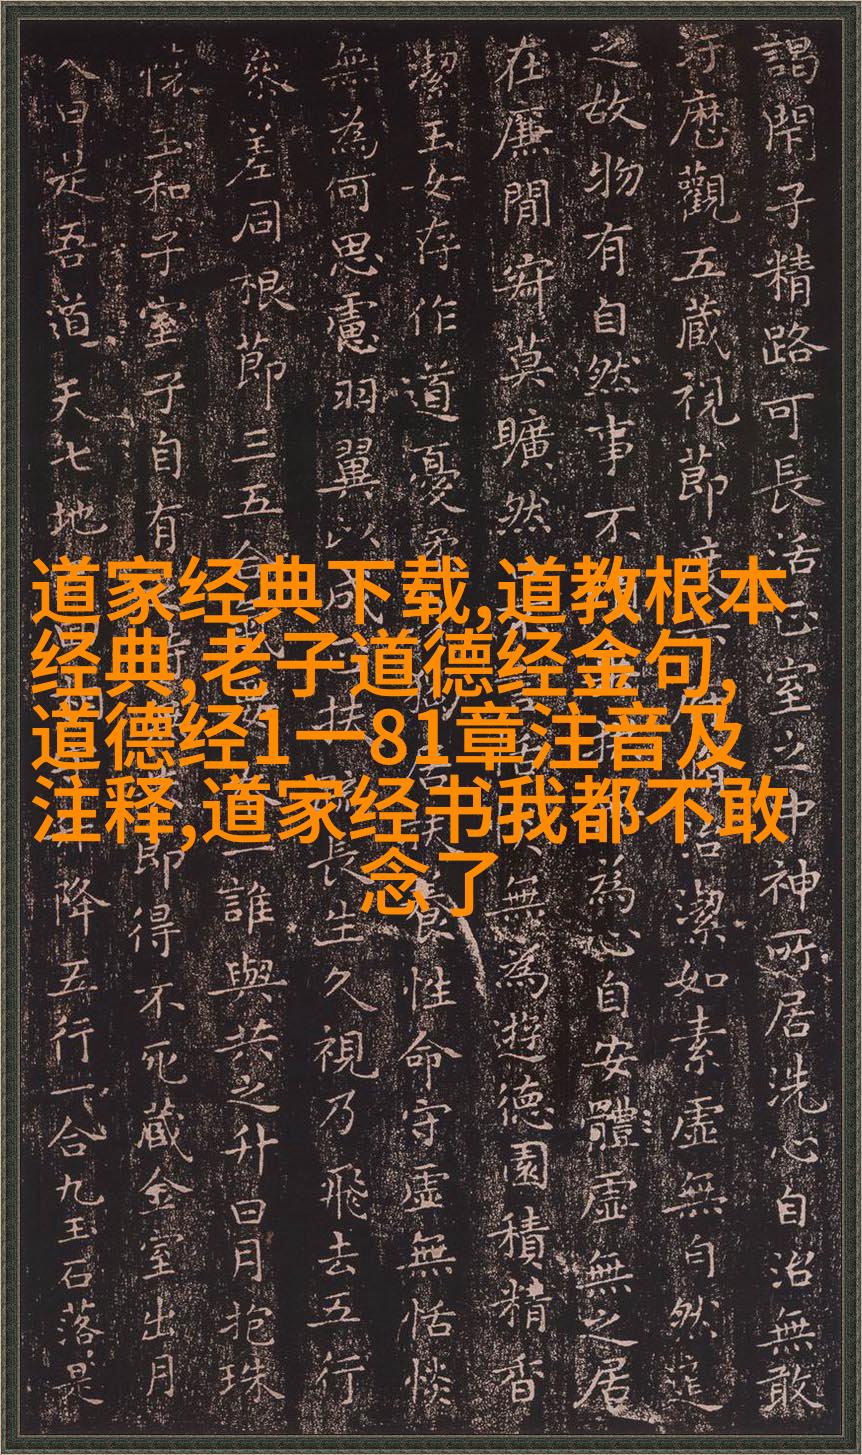 道家经典下载,道教根本
经典,老子道德经金句,
道德经1一81章注音及
注释,道家经书我都不敢
念了
謁閇子精路可長活正室之中神所居洗心自治無敢
汙歷觀五藏視節度治潔如素虛無自然道
之故物有自然事不為心自安體虛無之居
在廉閒寂莫曠然無為遊德園積精香
潔玉女存作道憂柔性命守虛無恬惔
無為何思慮羽翼以成扶長生久視乃飛去五行
參差同根節三五合一誰與共之升日月抱珠
懷玉和子室子自有即得不死藏金室出月
入日是吾道天七地升降五行一合九玉石落是